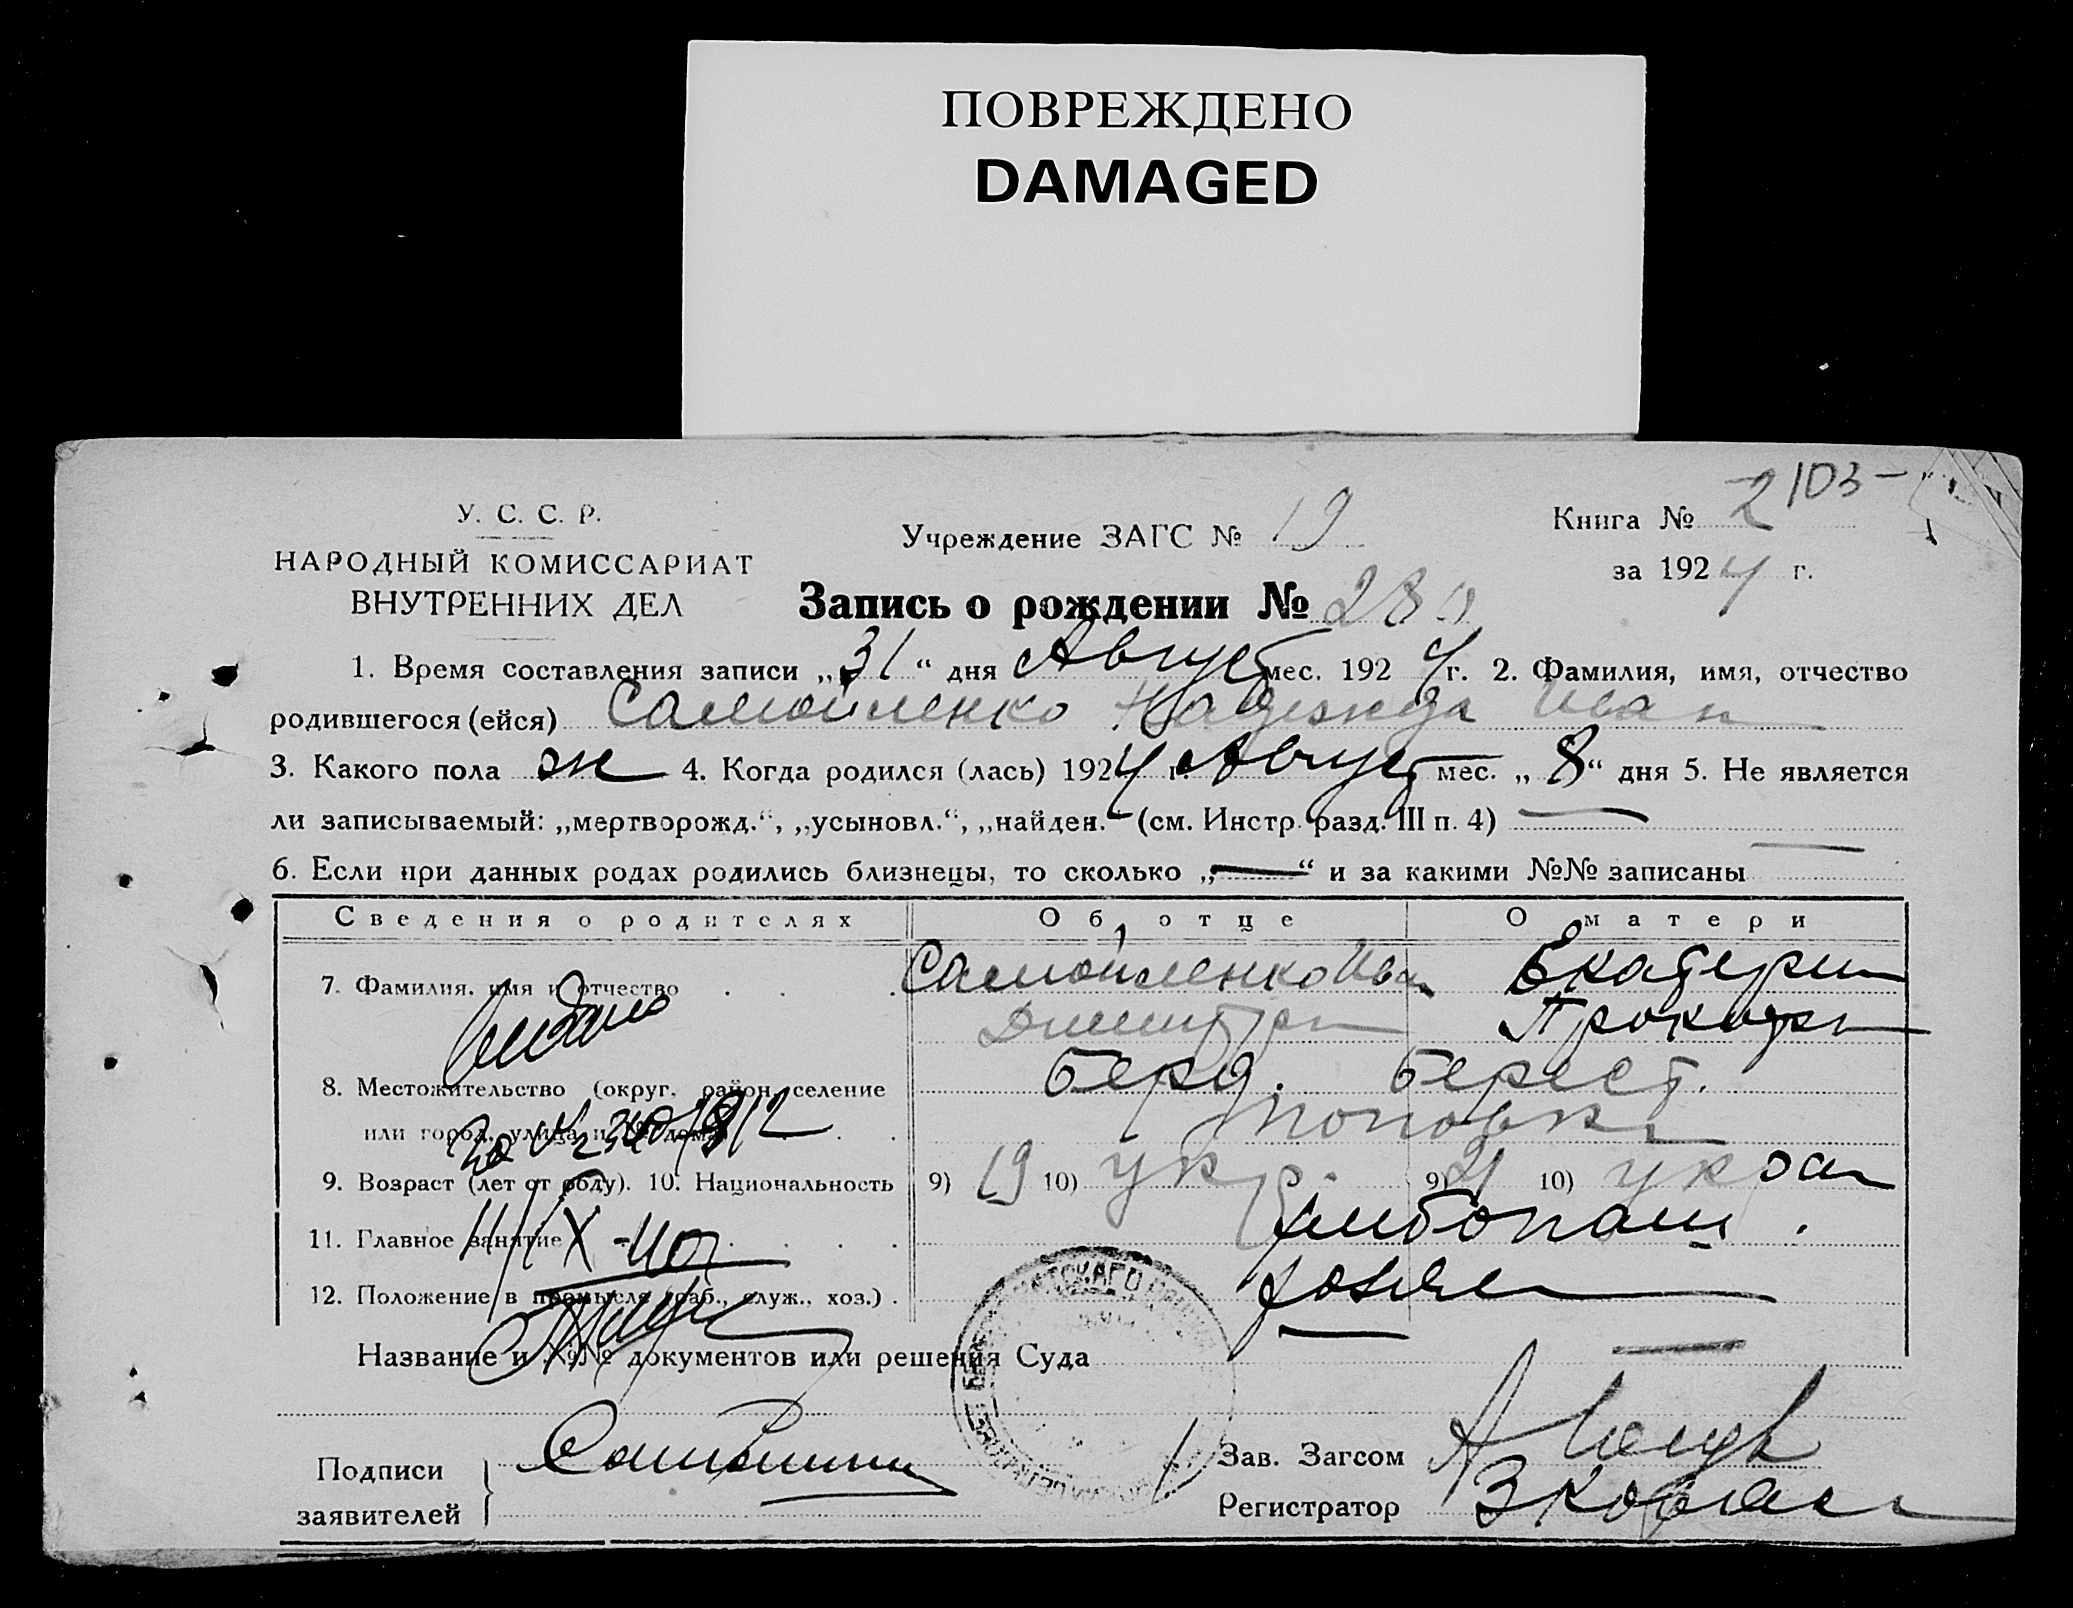 ПОВРЕЖДЕНО
DAMAGED
2 103-
У. С. С. Р.
НАРОДНЫЙ КОМИССАРИАТ
ВНУТРЕННИХ ДЕЛ
Учреждение ЗАГС № 19
Книга № 2
за 1924 г.
Запись о рождении № 280
1. Время составления записи „31“ дня Август мес. 1924 г. 2. Фамилия, имя, отчество
родившегося (ейся) Самойленко Надежда Иван
3. Какого пола ж 4. Когда родился (лась) 1924 г. Август мес. „8“ дня 5. Не является
ли записываемый: „мертворожд.“, „усыновл.“, „найден.“ (см. Инстр. разд. III п. 4) —
6. Если при данных родах родились близнецы, то сколько „—“ и за какими №№ записаны —
Сведения о родителях Об отце О матери
7. Фамилия, имя и отчество Самойленко Иван Екатерин
Дмитри Прокофи
8. Местожительство (округ, район, селение Берд. Берест.
или город, улица и № дома) Поповка
9. Возраст (лет от роду). 10. Национальность 9) 19 10) укр. 9) 21 10) укра
11. Главное занятие хлебопаш.
12. Положение в промысле (раб., служ., хоз.) хозяе
Название и №№ документов или решения Суда —
Подписи
заявителей
Зав. Загсом
Регистратор